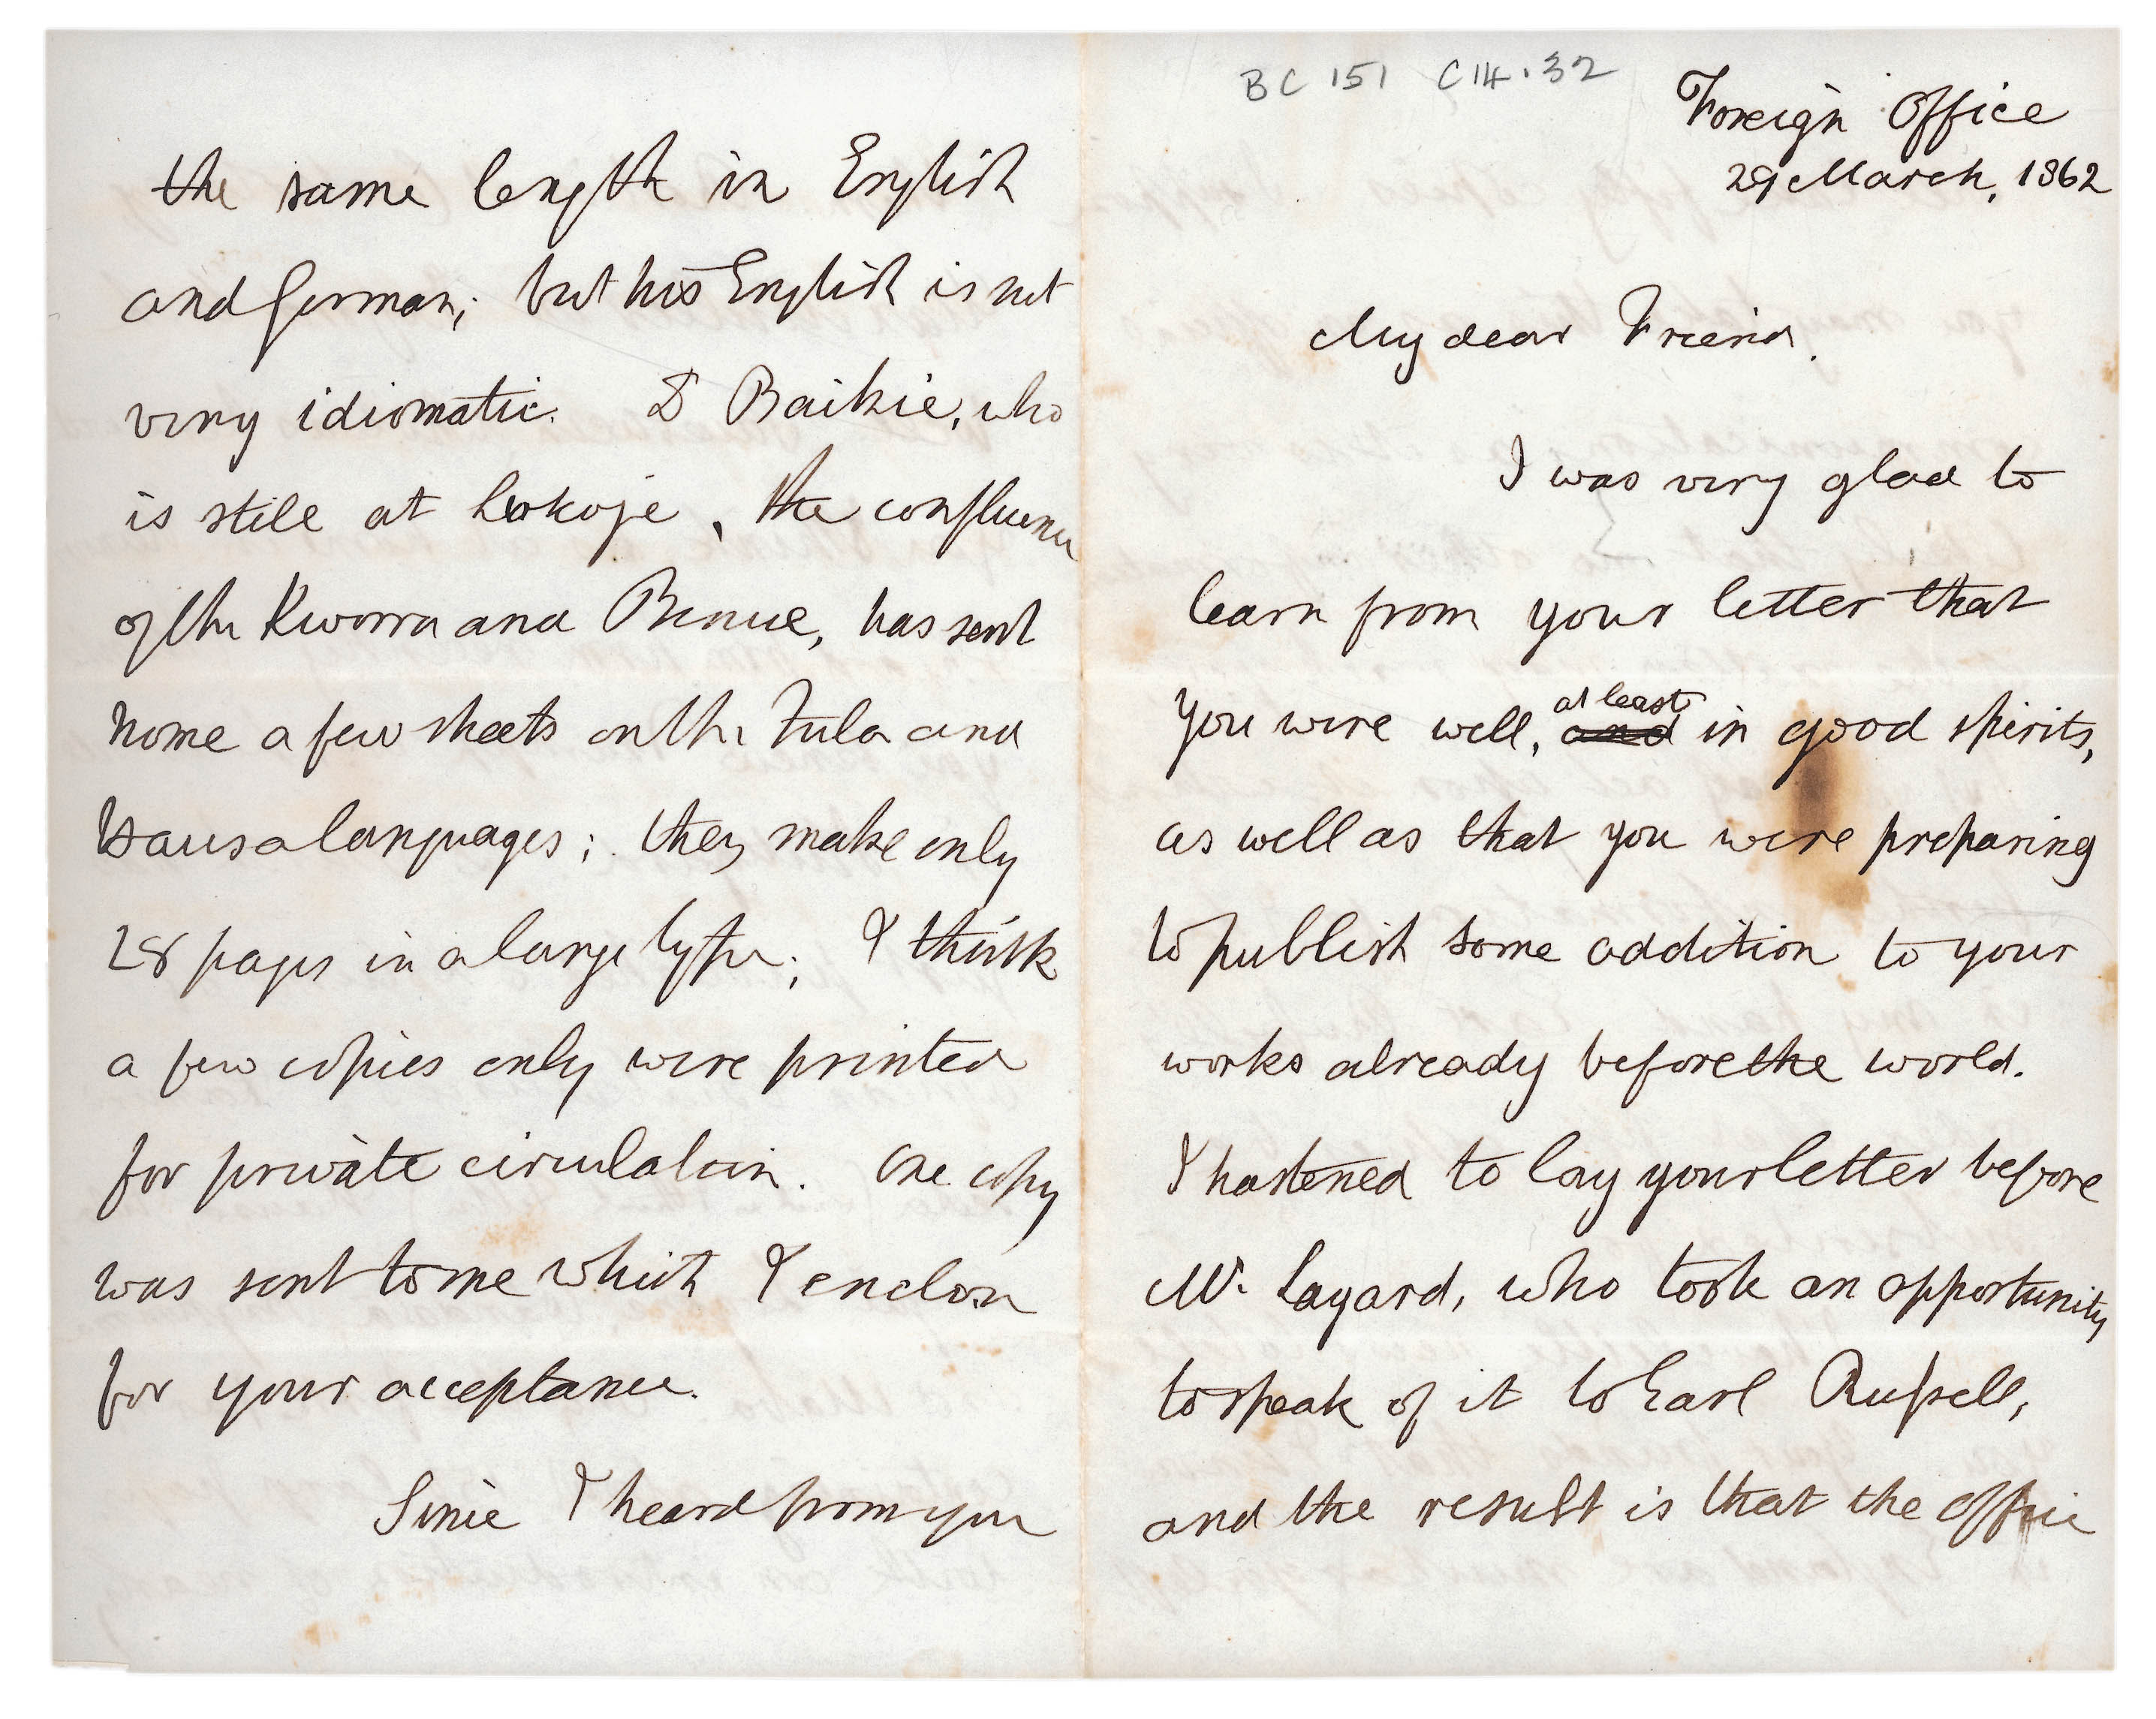 BC 151 C14.32
Foreign Office
29 March, 1862
My dear Friend.
I was very glad to
learn from your letter that
you were well, and at least in good spirits,
as well as that you were preparing
to publish some addition to your
works already before the world.
I hastened to lay your letter before
Mr. Layard, who took an opportunity
to speak of it to Earl Russell,
and the result is that the office
the same length in English
and German; but his English is not
very idiomatic. Dr Baikie, who
is still at Lokoje, the confluence
of the Kworra and Binue, has sent
home a few sheets on the Fula and
Hausa languages; they make only
28 pages in a large type; I think
a few copies only were printed
for private circulation. One copy
was sent to me which I enclose
for your acceptance.
Since I heard from you